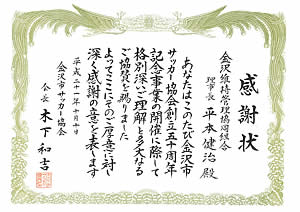 感謝状
金沢維持管理協同組合
理事長 平本健治 殿
あなたはこのたび金沢市
サッカー協会創立五十周年
記念事業の開催に際して
格別深いご理解と多大なる
ご協賛を賜りました
よってここにそのご厚意に対し
深く感謝の意を表します
平成二十一年十月十日
金沢市サッカー協会
会長 木下和吉